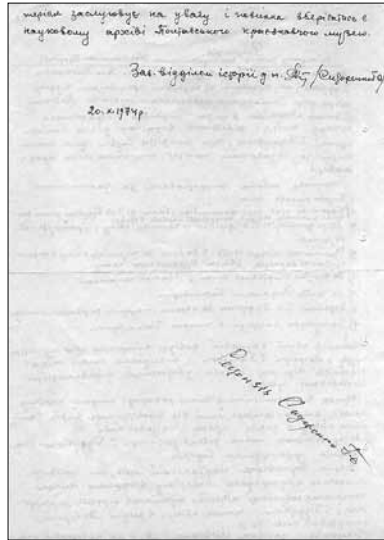 теріал заслуговує на увагу і повинна зберігатись в
науковому архіві Полтавського краєзнавчого музею.
Зав. відділом історії д. п. /Сидоренко Г.О/
20.X.1974р.
Рецензія Сидоренко Г.О.